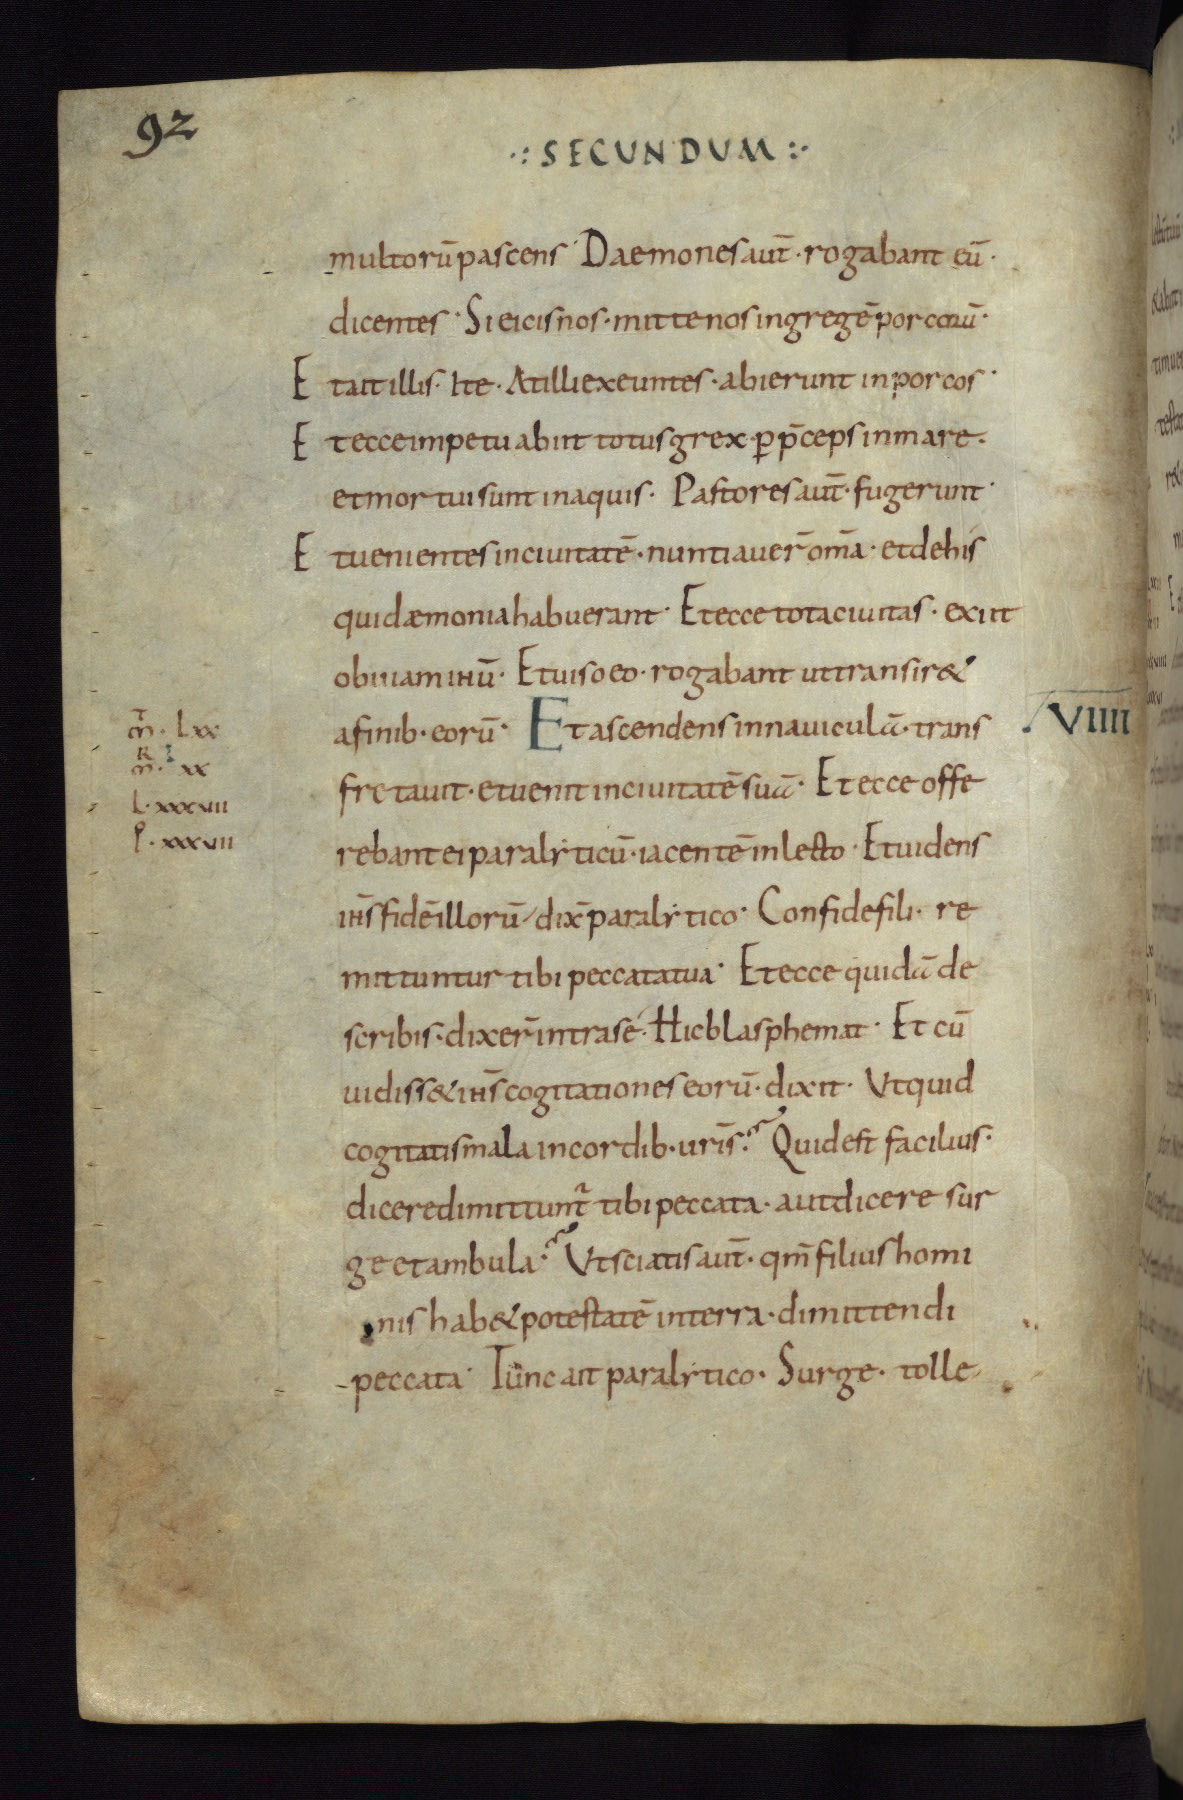 92
·: SECUNDUM :·
multorū pascens · Daemones aut̄ · rogabant eū ·
dicentes · Si eicis nos · mitte nos in gregē porcorū ·
Et ait illis · Ite · At illi exeuntes · abierunt in porcos ·
Et ecce impetu abiit totus grex · ꝑ p̄ceps in mare ·
et mortui sunt in aquis · Pastores aut̄ · fugerunt ·
Et uenientes in ciuitatē · nuntiauer̄ om̄a · et de his
qui dæmonia habuerant · Et ecce tota ciuitas · exiit
obuiam ihū · Et uiso eo · rogabant ut transir&
a finib · eorū · Et ascendens in nauiculā · trans
VIIII
m̄ · Lxx
fretauit · et uenit in ciuitatē suā · Et ecce offe
m̄ · xx
L · xxxvii
rebant ei paralyticū · iacentē in lecto · Et uidens
P · xxxvii
ihs̄ fidē illorū dix̄ paralytico · Confide fili · re
mittuntur tibi peccata tua · Et ecce quidā de
scribis · dixer̄ intra se · Hic blasphemat · Et cū
uidiss& ihs̄ cogitationes eorū · dixit · Ut quid
cogitatis mala in cordib · ur̄is · Quid est facilius ·
dicere dimittunt̄ tibi peccata · aut dicere sur
ge et ambula · Ut sciatis aut̄ · qm̄ filius homi
nis hab& potestatē in terra · dimittendi
peccata · Tunc ait paralytico · Surge · tolle